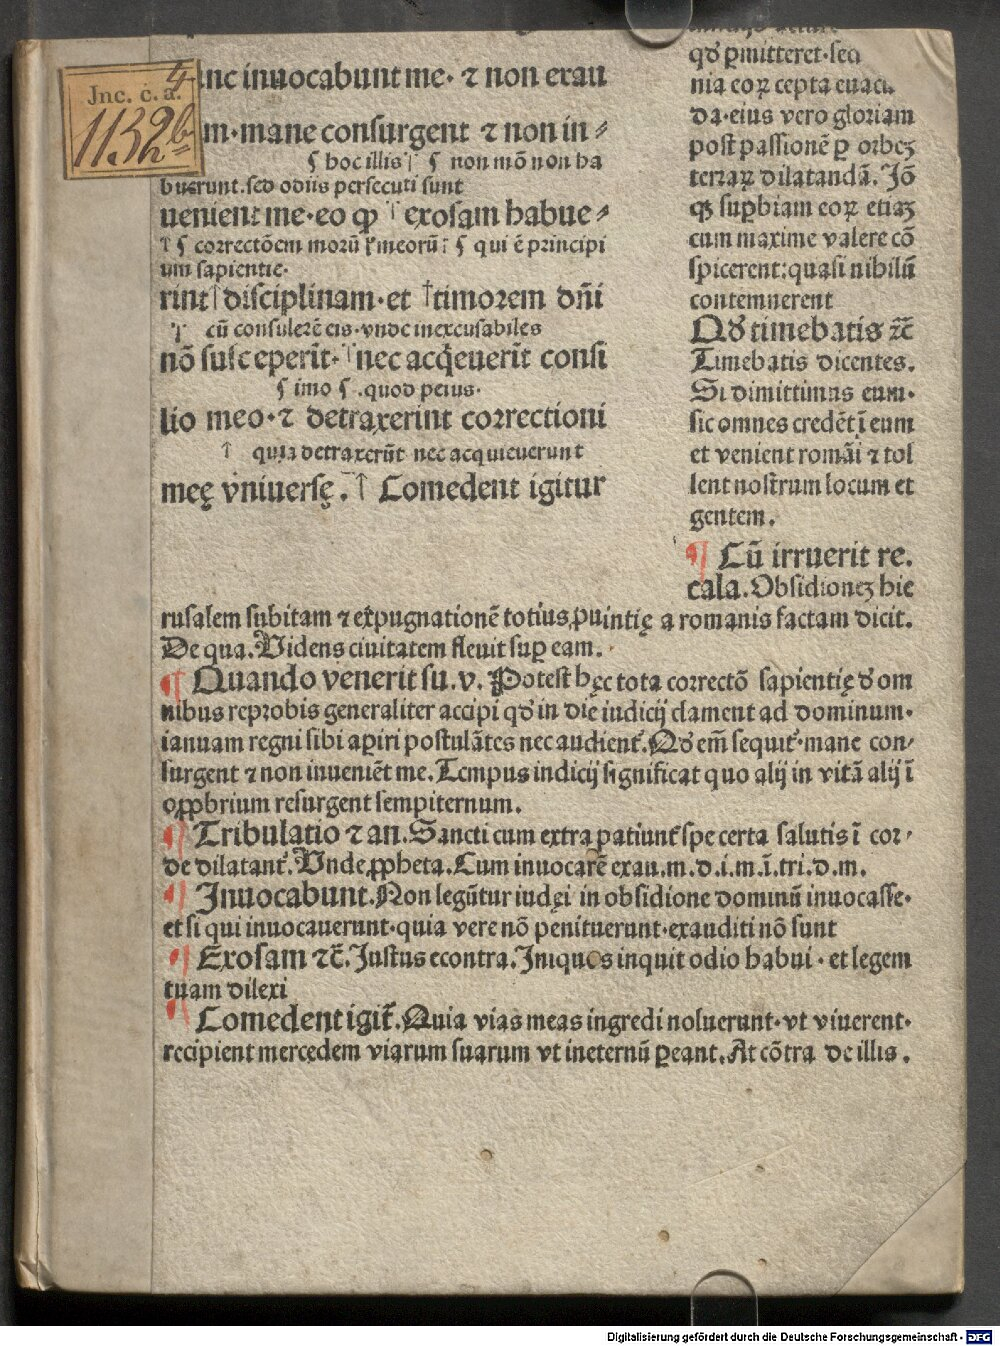 Jnc. c. a.
4
1132b
nc inuocabunt me· ⁊ non exau
m·mane consurgent ⁊ non in⸗
ſ hoc illis ſ non mõ non ha
buerunt.sed odiis persecuti sunt
uenient me·eo ꝙ †exosam habue⸗
† ſ correctõem morũ ꝉ meorũ† ſ qui ẽ principi
um sapientie·
rint†disciplinam·et †timorem dñi
† cũ consulerẽ eis·vnde inexcusabiles
nõ susceperĩt·†nec acq̃euerĩt consi
ſ imo ſ .quod peius·
lio meo·⁊ detraxerint correctioni
† quia detraxerũt nec acquieuerunt
meę vniuersę.† Comedent igitur
qđ ꝑmitteret·sed
nia eoꝝ cepta euacu
da·eius vero gloriam
post passionẽ ꝑ orbeꝫ
terraꝝ dilatandã. Jõ
qꝫ suꝑbiam eoꝝ etiaꝫ
cum maxime valere cõ
spicerent:quasi nibilũ
contemnerent
Qđ timebatis ⁊c̃
Timebatis dicentes.
Si dimittimus eum·
sic omnes credẽt ĩ eum
et venient romãi ⁊ tol
lent nostrum locum et
gentem.
¶ Cũ irruerit re.
cala. Obsidioneꝫ hie
rusalem subitam ⁊ exꝑugnationẽ totius ꝓuintię a romanis factam dicit.
De qua. Videns ciuitatem fleuit suꝑ eam.
¶ Quando venerit su.v. Potest hęc tota correctõ sapientię đ om
nibus reprobis generaliter accipi qđ in die iudicij clament ad dominum·
ianuam regni sibi aꝑiri postulãtes nec audient᷑.Qđ em̃ sequit᷑·mane con⸗
surgent ⁊ non inueniẽt me. Tempus iudicij significat quo alij in vitã alij ĩ
oꝓbrium resurgent sempiternum.
¶ Tribulatio ⁊ an. Sancti cum extra patiunt᷑ spe certa salutis ĩ cor⸗
de dilatant᷑. Vnde ꝓpheta. Cum inuocarẽ exau.m.d.i.m.ĩ.tri.d.m.
¶ Inuocabunt. Non legũtur iudęi in obsidione dominũ inuocasse·
et si qui inuocauerunt·quia vere nõ penituerunt·exauditi nõ sunt
¶ Exosam ⁊c̃. Justus econtra. Iniquos inquit odio habui· et legem
tuam dilexi
¶ Comedent igit᷑. Quia vias meas ingredi noluerunt·vt viuerent·
recipient mercedem viarum suarum vt ineternũ ꝑeant. At cõtra de illis.
Digitalisierung gefördert durch die Deutsche Forschungsgemeinschaft - DFG